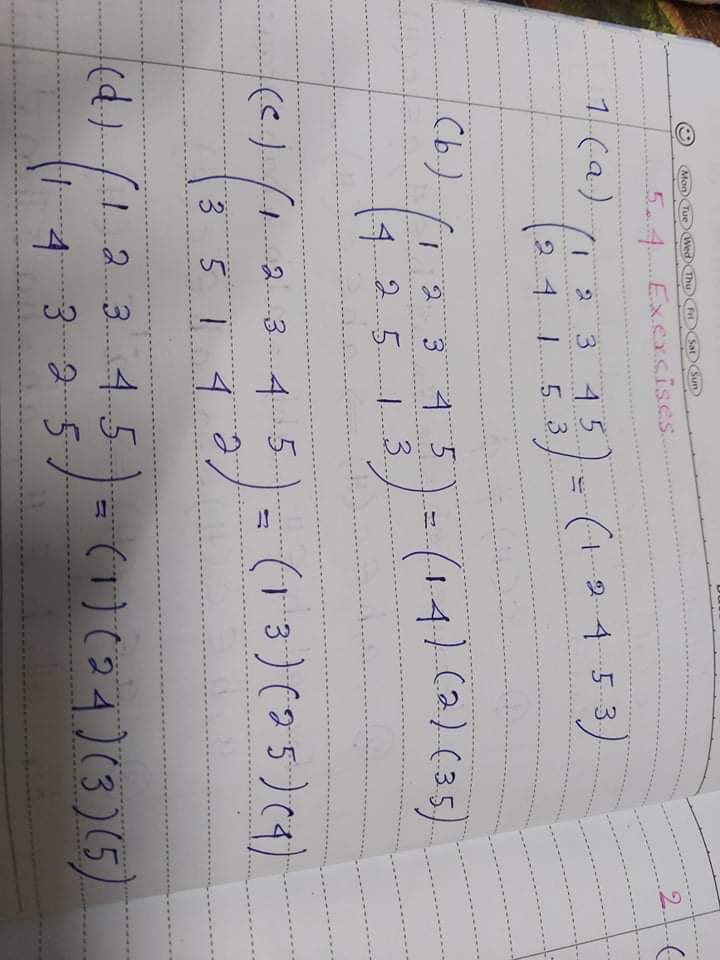 Mon Tue Wed Thu Fri Sat Sun
5.4 Exercises
1 (a) ( 1 2 3 4 5
2 4 1 5 3 ) = ( 1 2 4 5 3 )
(b) ( 1 2 3 4 5
4 2 5 1 3 ) = ( 1 4 ) ( 2 ) ( 3 5 )
(c) ( 1 2 3 4 5
3 5 1 4 2 ) = ( 1 3 ) ( 2 5 ) ( 4 )
(d) ( 1 2 3 4 5
1 4 3 2 5 ) = ( 1 ) ( 2 4 ) ( 3 ) ( 5 )
2 (